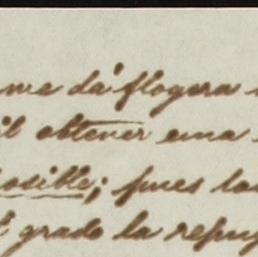 me dá flogera
il obtener una
posible; pues la
l grado la repug